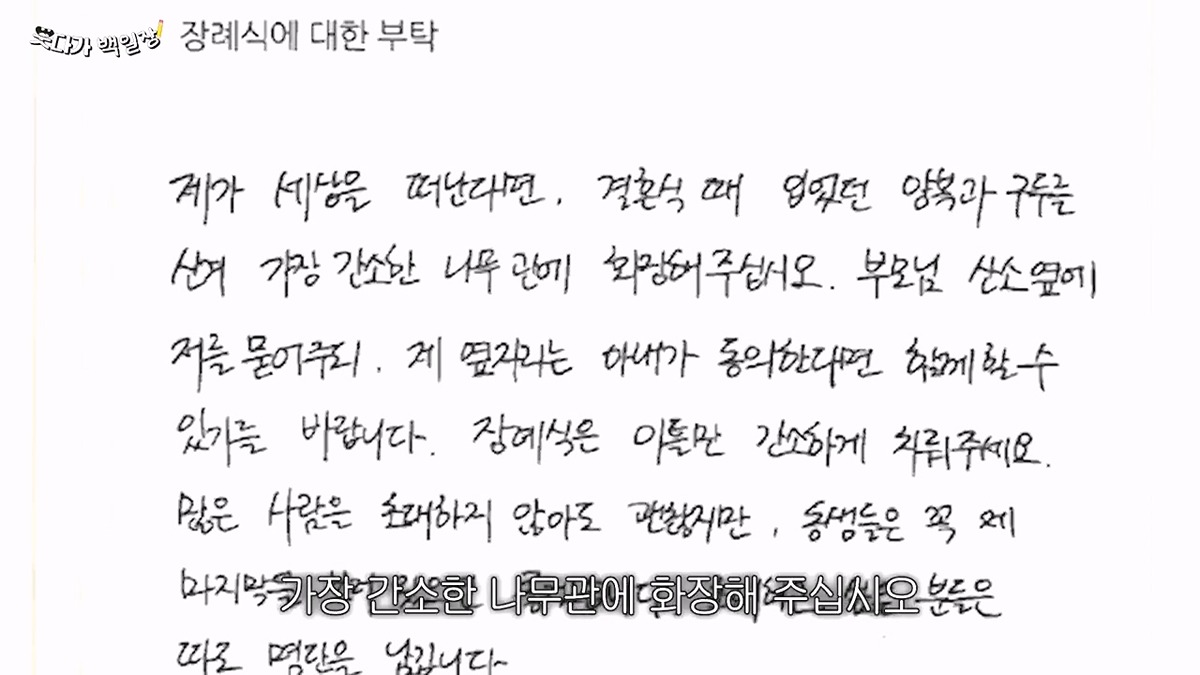 웃다가 백일장
장례식에 대한 부탁
제가 세상을 떠난다면, 결혼식 때 입었던 양복과 구두를
신겨 가장 간소한 나무 관에 화장해 주십시오. 부모님 산소 옆에
저를 묻어주되, 제 옆자리는 아내가 동의한다면 함께할 수
있기를 바랍니다. 장예식은 이틀만 간소하게 치뤄주세요.
많은 사람을 초대하지 않아도 괜찮지만, 동생들은 꼭 제
마지막을 분들은
가장 간소한 나무관에 화장해 주십시오
따로 명단을 남깁니다.